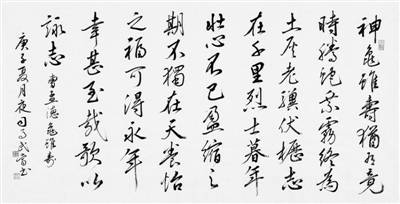 神龜雖壽猶有竟
時騰蛇乘霧終為
土灰老驥伏櫪志
在千里烈士暮年
壯心不已盈縮之
期不獨在天養怡
之福可得永年
幸甚至哉歌以
詠志 曹孟德龜雖壽
庚子夏月夜司马武書